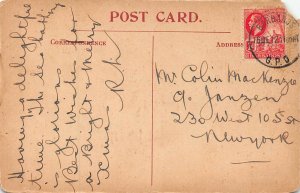 POST CARD.
CORRESPONDENCE
ADDRESS
Having a delightful
time. The sea bathing
is glorious
Best wishes for
a Bright & Merry
Xmas RK
Mr Colin MacKenzie
c/o Janzen
230 West 105 St
New york
G.P.O